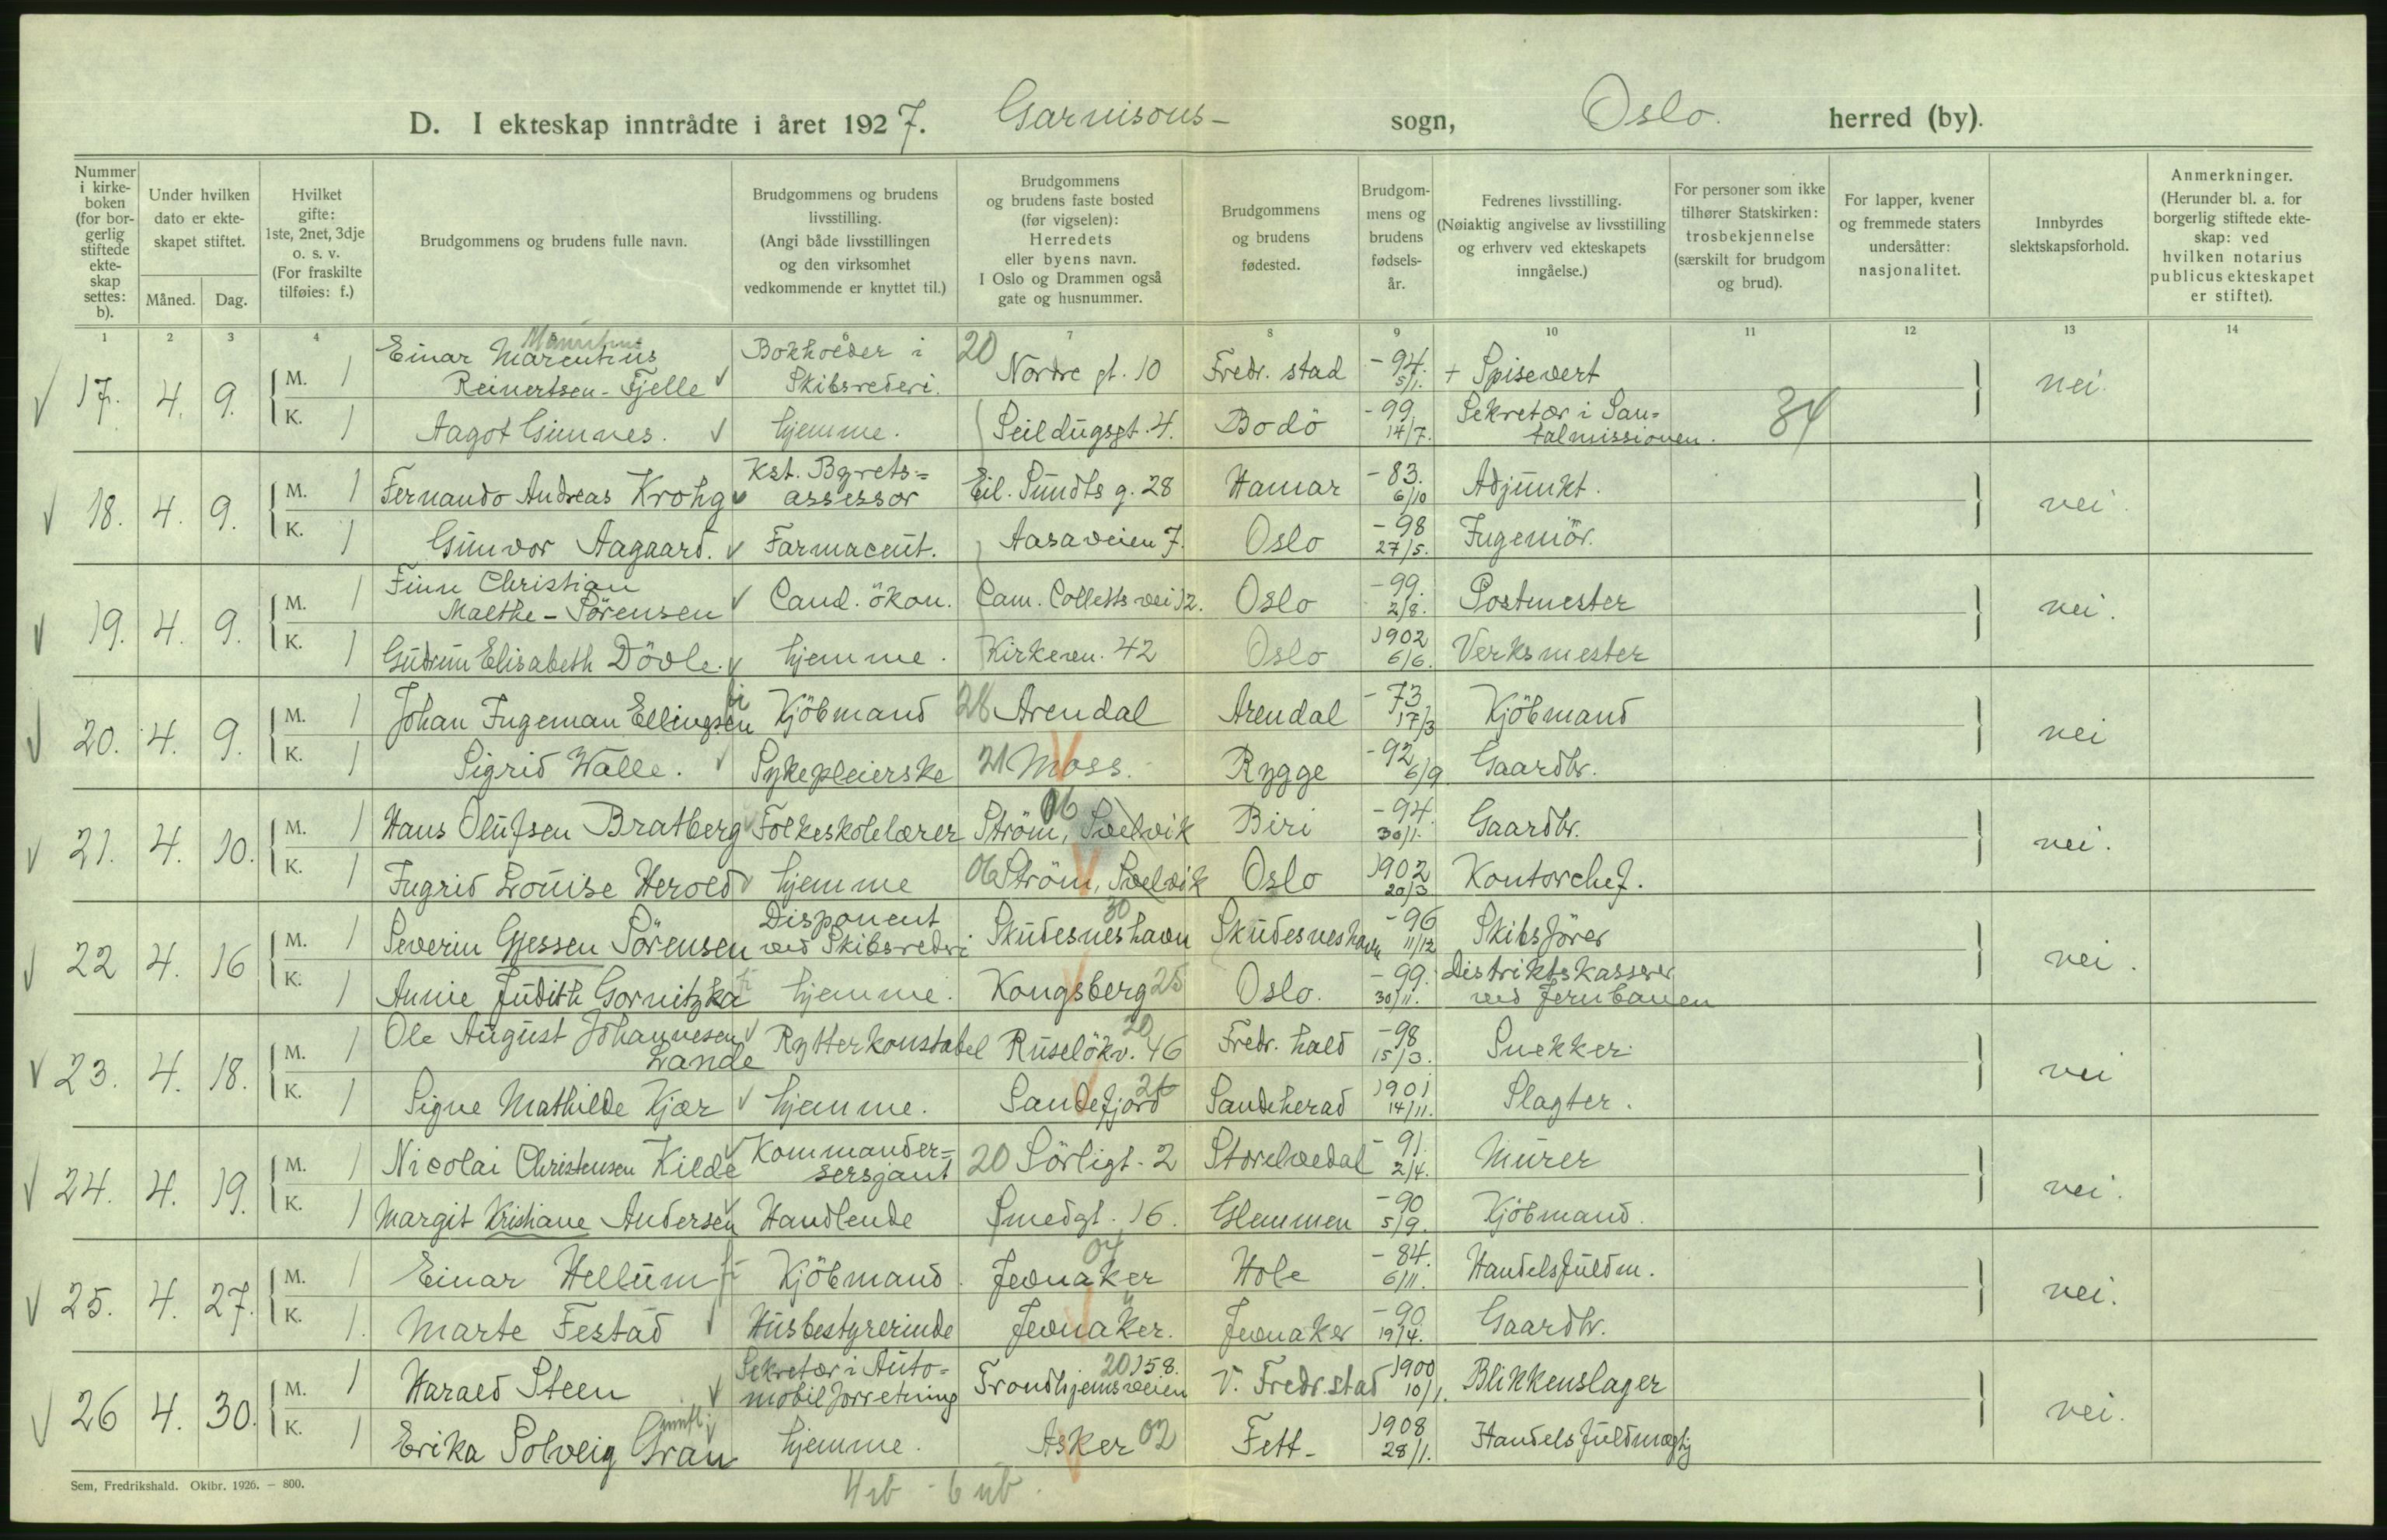 D. I ekteskap inntrådte i året 1927. Garnisons- sogn, Oslo. herred (by).
Nummer i kirke-boken (for bor-gerlig stiftede ekte-skap settes: b).
Under hvilken dato er ekte-skapet stiftet.
Måned. Dag.
Hvilket gifte: 1ste, 2net, 3dje o. s. v. (For fraskilte tilføies: f.)
Brudgommens og brudens fulle navn.
Brudgommens og brudens livsstilling. (Angi både livsstillingen og den virksomhet vedkommende er knyttet til.)
Brudgommens og brudens faste bosted (før vigselen): Herredets eller byens navn. I Oslo og Drammen også gate og husnummer.
Brudgommens og brudens fødested.
Brudgom-mens og brudens fødsels-år.
Fedrenes livsstilling. (Nøiaktig angivelse av livsstilling og erhverv ved ekteskapets inngåelse.)
For personer som ikke tilhører Statskirken: trosbekjennelse (særskilt for brudgom og brud).
For lapper, kvener og fremmede staters undersåtter: nasjonalitet.
Innbyrdes slektskapsforhold.
Anmerkninger. (Herunder bl. a. for borgerlig stiftede ekte-skap: ved hvilken notarius publicus ekteskapet er stiftet).
1 2 3 4 7 8 9 10 11 12 13 14
17. 4. 9. M. 1 Einar Marentius Reinertsen-Fjelle Bokholder i Skibsrederi. 20 Nordre gt. 10 Fredr. stad -94. 5/1. + Spisevert nei.
K. 1 Aagot Gimnes. hjemme. Seildugsgt. 4. Bodö -99. 14/7. Sekretær i San=talmissionen. 34
18. 4. 9. M. 1 Fernando Andreas Krohg Kst. Byrets=assessor Eil. Sundts g. 28 Hamar -83. 6/10 Adjunkt. nei.
K. 1 Gunvor Aagaard. Farmaceut. Aasaveien 7. Oslo -98 27/5. Ingeniör.
19. 4. 9. M. 1 Finn Christian Malthe-Sörensen Cand. ökon. Cam. Colletts vei 12. Oslo -99. 2/8. Postmester nei.
K. 1 Gudrun Elisabeth Dövle. hjemme. Kirkevn. 42 Oslo 1902 6/6. Verksmester
20. 4. 9. M. 1 Johan Ingeman Ellingsen Kjöbmand 28 Arendal Arendal -73 17/3 Kjöbmand nei
K. 1 Sigrid Walle. Sykepleierske 21 Moss. Rygge -92 6/9 Gaardbr.
21. 4. 10. M. 1 Hans Olufsen Bratberg Folkeskolelærer 06 Ström, Svelvik Biri -94. 30/1. Gaardbr. nei.
K. 1 Ingrid Louise Herold hjemme 06 Ström, Svelvik Oslo 1902 20/3 Kontorchef.
22 4. 16 M. 1 Severin Gjessen Sörensen Disponent ved Skibsrederi Skudesneshavn 30 Skudesneshavn -96 11/12 Skibsförer nei.
K. 1 Annie Judith Gornitzka hjemme. Kongsberg 25 Oslo. -99. 30/11. Distriktskasserer ved Jernbanen
23. 4. 18. M. 1 Ole August Johannesen Lande Rytterkonstabel Ruselökv. 46 20 Fredr. hald -98 15/3. Snekker nei
K. 1 Signe Mathilde Kjær hjemme. Sandefjord 26 Sandeherad 1901 14/11. Slagter.
24. 4. 19. M. 1 Nicolai Christensen Kilde Kommander=sersjant 20 Sörligt. 2 Storelvedal -91. 2/4. Murer nei.
K. 1 Margit Kristiane Andersen Handlende Smedgt. 16. Glemmen -90 5/9. Kjöbmand.
25. 4. 27. M. 1 Einar Hellum Kjöbmand. Jevnaker 04 Hole -84. 6/11. Handelsfuldm. nei.
K. 1. Marte Festad Husbestyrerinde Jevnaker. Jevnaker -90 19/4. Gaardbr.
26 4. 30. M. 1 Harald Steen Sekretær i Auto=mobilforretning 20 158. Trondhjemsveien V. Fredr.stad 1900 10/1. Blikkenslager nei.
K. 1 Erika Solveig Gran hjemme. Asker 02 Fett- 1908 28/1. Handelsfuldmægtig
Sem, Fredrikshald. Oktbr. 1926. — 800.